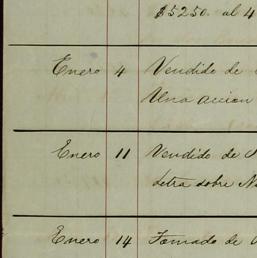 $5250. al 4
Enero 4 Vendido de
Una accion
Enero 11 Vendido de
Letra sobre
Enero 14 Tomado de